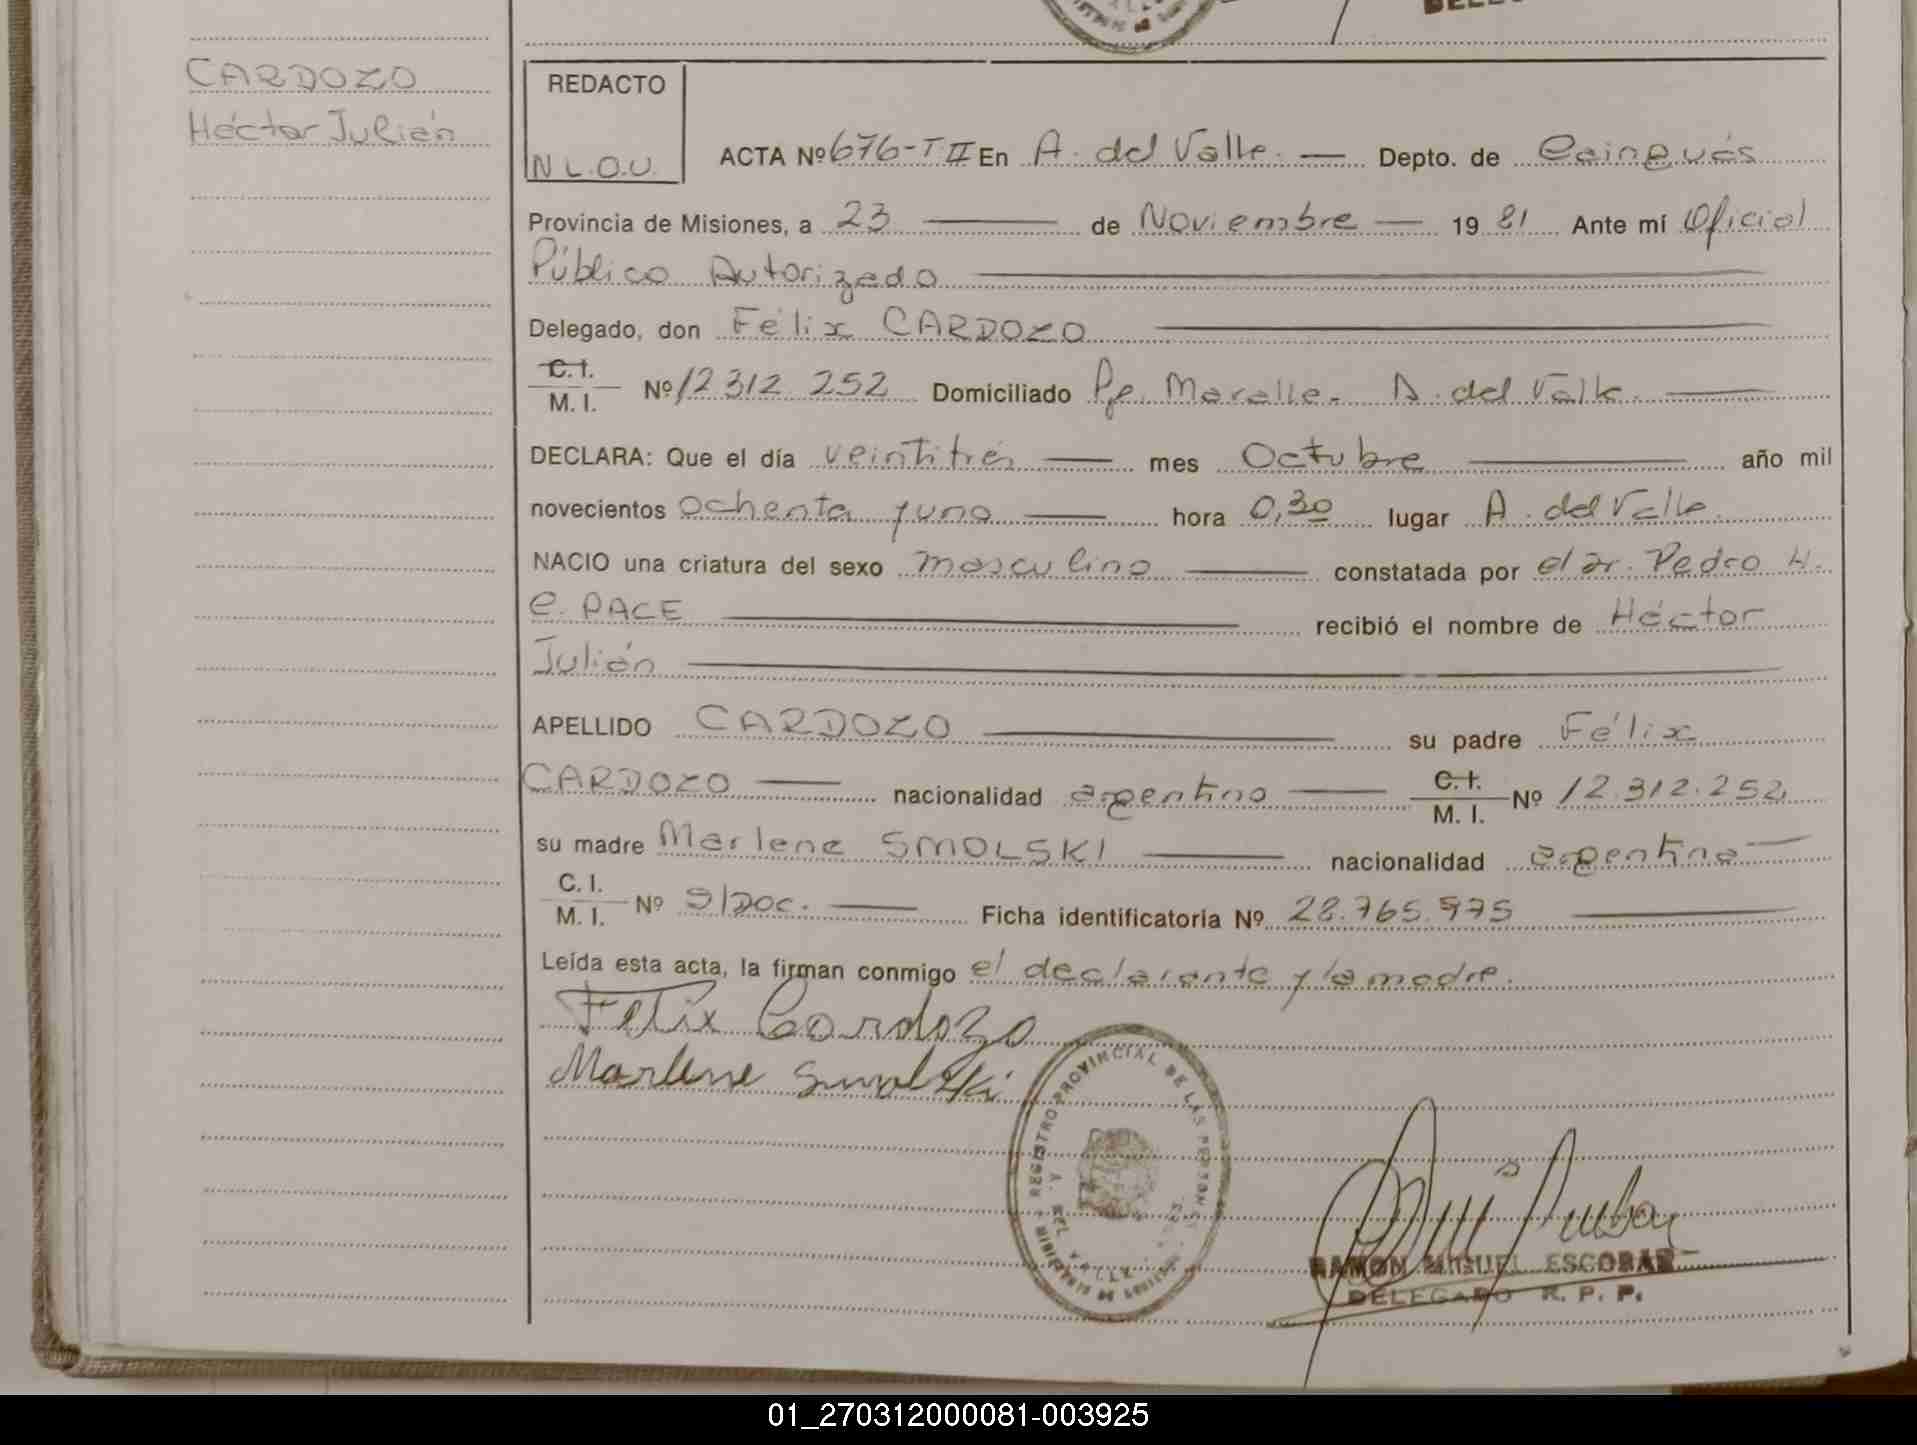 CARDOZO
Héctor Julián
REDACTO
N L.O.U.
ACTA Nº 676-T II En A. del Valle. — Depto. de Cainguás
Provincia de Misiones, a 23 — de Noviembre — 19 81 Ante mí Oficial
Público Autorizado
Delegado, don Félix CARDOZO
C. I.
M. I. Nº 12 312 252 Domiciliado Pje. Maralle. A. del Valle.
DECLARA: Que el día veintitrés — mes Octubre — año mil
novecientos ochenta y uno — hora 0,30 lugar A. del Valle.
NACIO una criatura del sexo masculino — constatada por el dr. Pedro H.
E. PACE — recibió el nombre de Héctor
Julián
APELLIDO CARDOZO — su padre Félix
CARDOZO — nacionalidad argentino — C. I.
M. I. Nº 12.312.252
su madre Marlene SMOLSKI — nacionalidad argentina
C. I.
M. I. Nº S/Doc. — Ficha identificatoria Nº 28.765.975
Leída esta acta, la firman conmigo el declarante y la madre.
Felix Cardozo
Marlene Smolski
REGISTRO PROVINCIAL DE LAS PERSONAS
RAMON MIGUEL ESCOBAR
DELEGADO R. P. P.
01_270312000081-003925